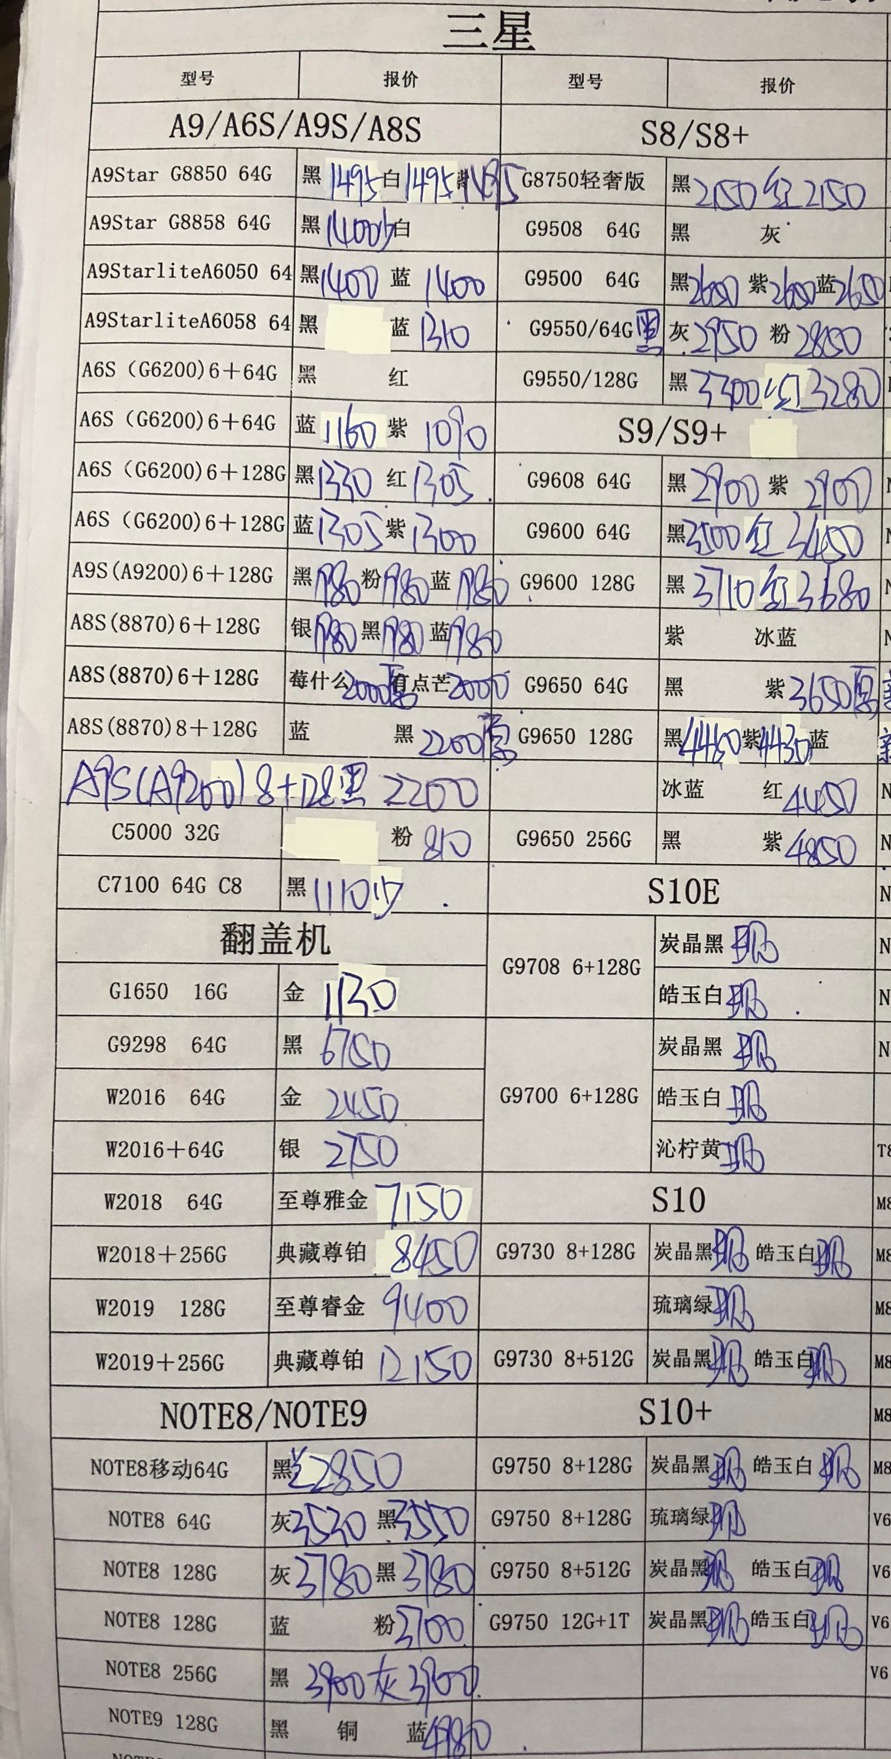 三星
型号 报价 型号 报价
A9/A6S/A9S/A8S S8/S8+
A9Star G8850 64G 黑1495白1495紫1485 G8750轻奢版 黑2150红2150
A9Star G8858 64G 黑1400少白 G9508 64G 黑 灰
A9StarliteA6050 64 黑1400 蓝 1400 G9500 64G 黑2600 紫2600蓝2650
A9StarliteA6058 64 黑 蓝 1310 G9550/64G黑 灰2950 粉2850
A6S (G6200)6+64G 黑 红 G9550/128G 黑3300红3280
A6S (G6200)6+64G 蓝1160紫 1090 S9/S9+
A6S (G6200)6+128G 黑1330 红1305 G9608 64G 黑2900紫 2900
A6S (G6200)6+128G 蓝1305紫1300 G9600 64G 黑3500红3450
A9S(A9200)6+128G 黑1980粉1980蓝1980 G9600 128G 黑3710红3680
A8S(8870)6+128G 银1980黑1980蓝1980 紫 冰蓝
A8S(8870)6+128G 莓什么2000原有点芒2000 G9650 64G 黑 紫3650原
A8S(8870)8+128G 蓝 黑2200原 G9650 128G 黑4460紫4430蓝
A9S(A9200)8+128黑 2200 冰蓝 红4450
C5000 32G 粉 810 G9650 256G 黑 紫4850
C7100 64G C8 黑1110少 S10E
翻盖机 G9708 6+128G 炭晶黑现
G1650 16G 金 1130 皓玉白现
G9298 64G 黑 6750 G9700 6+128G 炭晶黑 现
W2016 64G 金 2450 皓玉白现
W2016+64G 银 2750 沁柠黄现
W2018 64G 至尊雅金 7150 S10
W2018+256G 典藏尊铂 8450 G9730 8+128G 炭晶黑现 皓玉白现
W2019 128G 至尊睿金 9400 琉璃绿现
W2019+256G 典藏尊铂 12150 G9730 8+512G 炭晶黑现 皓玉白现
NOTE8/NOTE9 S10+
NOTE8移动64G 黑2850 G9750 8+128G 炭晶黑现 皓玉白现
NOTE8 64G 灰3530 黑3550 G9750 8+128G 琉璃绿现
NOTE8 128G 灰3780黑3780 G9750 8+512G 炭晶黑现 皓玉白现
NOTE8 128G 蓝 粉3700 G9750 12G+1T 炭晶黑现皓玉白现
NOTE8 256G 黑 3900灰3900
NOTE9 128G 黑 铜 蓝4980